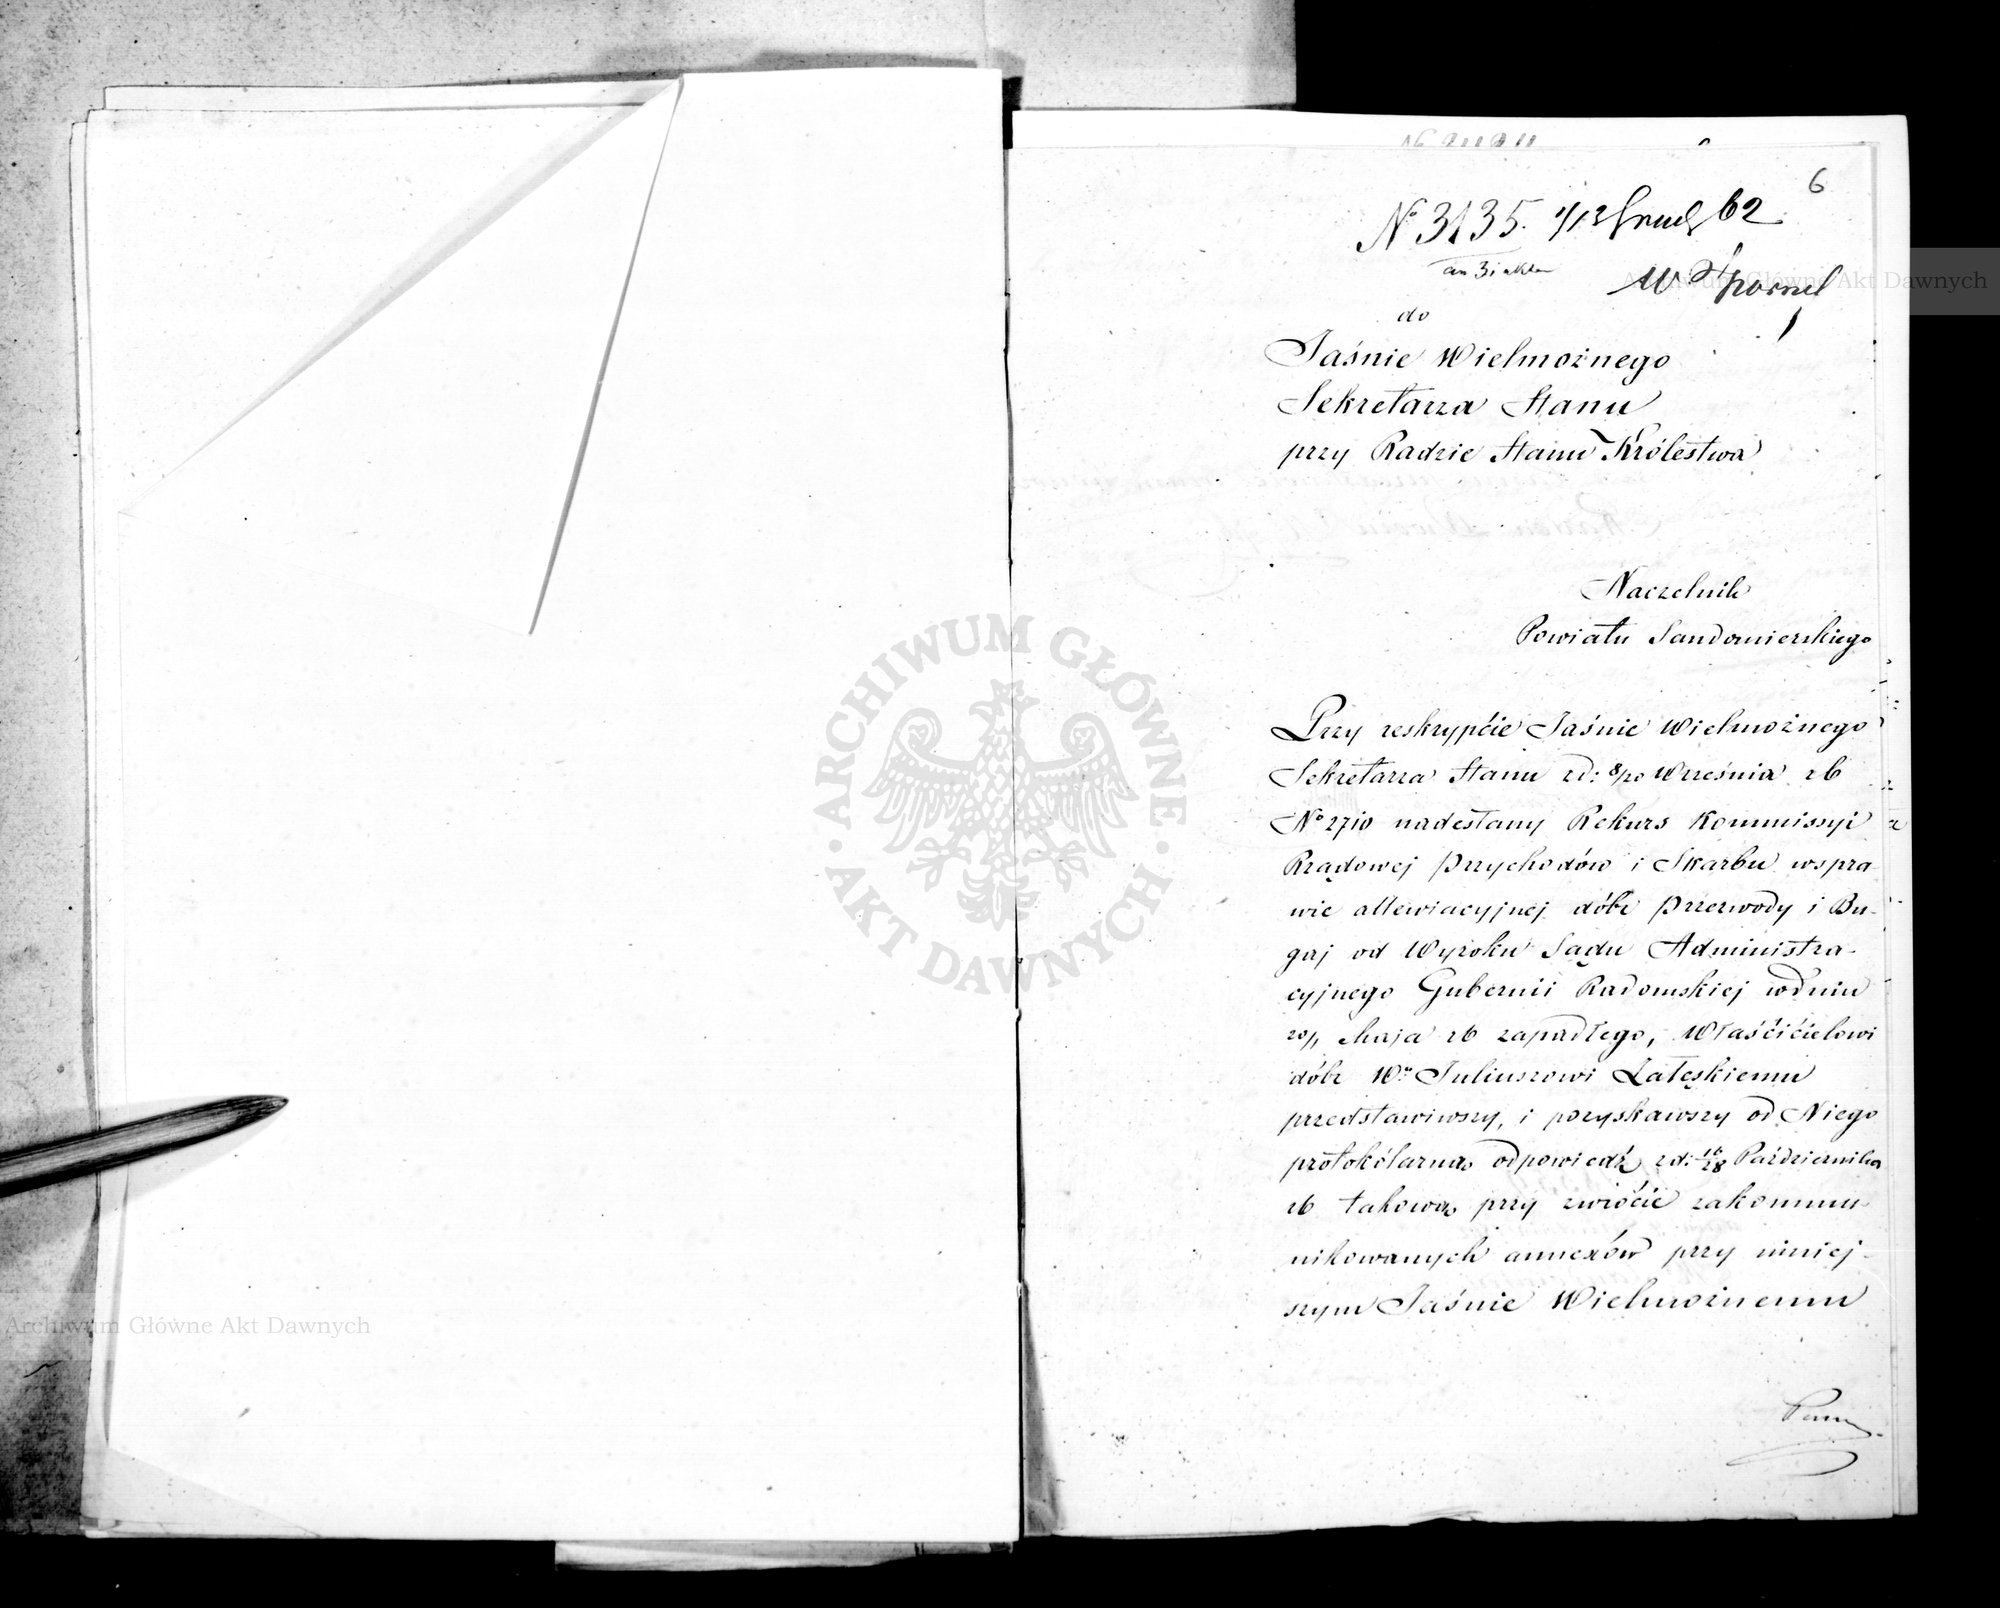 6
№ 3135. 1/13 Grud 62
do
Jaśnie Wielmożnego
Sekretarza Stanu
przy Radzie Stanu Królestwa
Naczelnik
Powiatu Sandomierskiego
Przy reskrypćie Jaśnie Wielmożnego
Sekretarza Stanu zd: 8/20 Września rb
№ 2710 nadesłany Rekurs Kommissyi
Rządowej Przychodów i Skarbu wspra-
wie allewiacyjnej dóbr Przerwody i Bu-
gaj od Wyroku Sądu Administra-
cyjnego Gubernii Radomskiej wdniu
Maja rb zapadłego, Właśćićielowi
dóbr Wu Juliuszowi Załęskiemu
przedstawiwszy, i pozyskawszy od Niego
protokólarną odpowiedź zd: 16/28 Października
rb takową przy zwróćie zakommu-
nikowanych annexów przy niniej-
szym Jaśnie Wielmożnemu
Panu
ARCHIWUM GŁÓWNE
AKT DAWNYCH
Archiwum Główne Akt Dawnych
Archiwum Główne Akt Dawnych